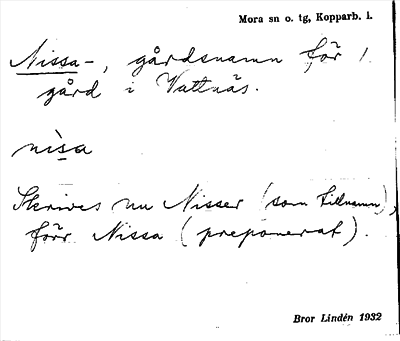 Mora sn o. tg, Kopparb. l.
Nissa-, gårdsnamn för 1
gård i Vattnäs.
nìsa
Skrives nu Nisser (som tillnamn),
förr Nissa (preponerat).
Bror Lindén 1932